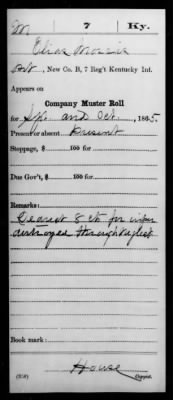 M. 7 Ky.
Elias Morris
Pvt, New Co. B, 7 Reg't Kentucky Inf.
Appears on
Company Muster Roll
for Sep. and Oct., 1865
Present or absent Present
Stoppage, $ 100 for
Due Gov't, $ 100 for
Remarks:
8 cts for
destroyed through neglect
Book mark:
House
(858) Copyist.